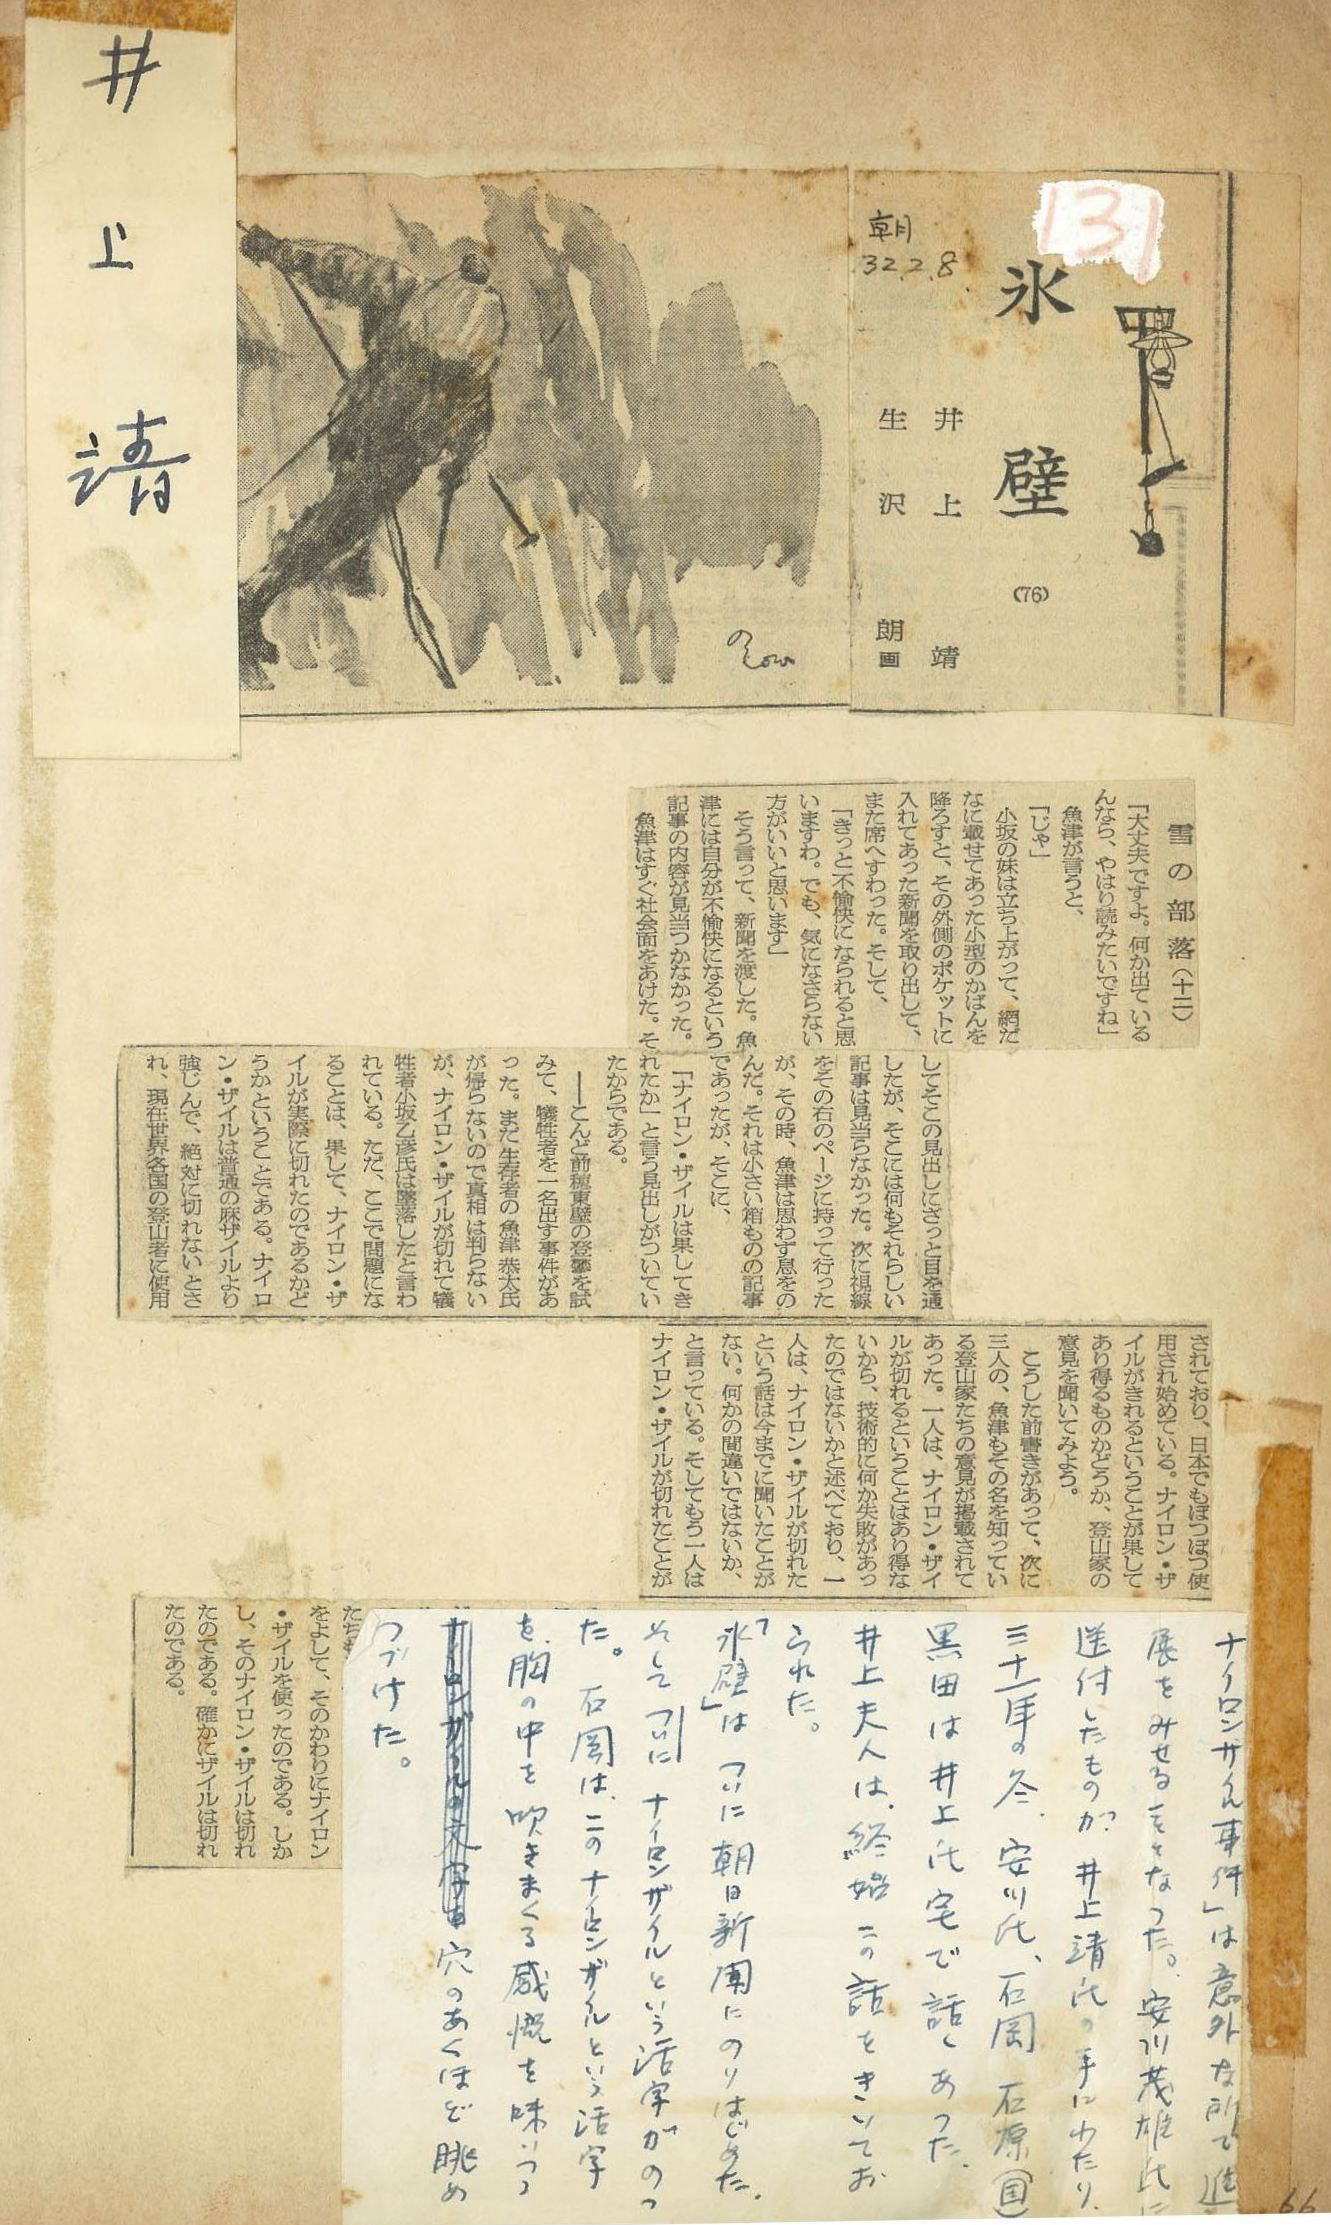 井上靖
131
朝
32.2.8
氷壁
(76)
井上靖
生沢朗画
雪の部落(十二)
「大丈夫ですよ。何か出ている
んなら、やはり読みたいですね」
魚津が言うと、
「じゃ」
小坂の妹は立ち上がって、網だ
なに載せてあった小型のかばんを
降ろすと、その外側のポケットに
入れてあった新聞を取り出して、
また席へすわった。そして、
「きっと不愉快になられると思
いますわ。でも、気になさらない
方がいいと思います」
そう言って、新聞を渡した。魚
津には自分が不愉快になるという
記事の内容が見当つかなかった。
魚津はすぐ社会面をあけた。そ
してそこの見出しにざっと目を通
したが、そこには何もそれらしい
記事は見当らなかった。次に視線
をその右のページに持って行った
が、その時、魚津は思わず息をの
んだ。それは小さい箱ものの記事
であったが、そこに、
「ナイロン・ザイルは果してき
れたか」と言う見出しがついてい
たからである。
――こんど前穂東壁の登攀を試
みて、犠牲者を一名出す事件があ
った。まだ生存者の魚津恭太氏
が帰らないので真相は判らない
が、ナイロン・ザイルが切れて犠
牲者小坂乙彦氏は墜落したと言わ
れている。ただ、ここで問題にな
ることは、果して、ナイロン・ザ
イルが実際に切れたのであるかど
うかということである。ナイロ
ン・ザイルは普通の麻ザイルより
強じんで、絶対に切れないとさ
れ、現在世界各国の登山者に使用
されており、日本でもぼつぼつ使
用され始めている。ナイロン・ザ
イルがきれるということが果して
あり得るものかどうか、登山家の
意見を聞いてみよう。
こうした前書きがあって、次に
三人の、魚津もその名を知ってい
る登山家たちの意見が掲載されて
あった。一人は、ナイロン・ザイ
ルが切れるということはあり得な
いから、技術的に何か失敗があっ
たのではないかと述べており、一
人は、ナイロン・ザイルが切れた
という話は今までに聞いたことが
ない。何かの間違いではないか、
と言っている。そしてもう一人は
ナイロン・ザイルが切れたことが
たちも
をよして、そのかわりにナイロン
・ザイルを使ったのである。しか
し、そのナイロン・ザイルは切れ
たのである。確かにザイルは切れ
たのである。
ナイロンザイル事件」は意外な所で進
展をみせることなった。安川茂雄氏に
送付したものが、井上靖氏の手にわたり、
三十一年の冬、安川氏、石岡 石原(国)
黒田は井上氏宅で話しあった。
井上夫人は、終始この話をきいてお
られた。
「氷壁」はついに朝日新聞にのりはじめた。
そしてついに ナイロンザイルという活字がのっ
た。石岡は、このナイロンザイルという活字
を、胸の中を吹きまくる感慨を味いつつ
穴のあくほど眺め
つづけた。
66